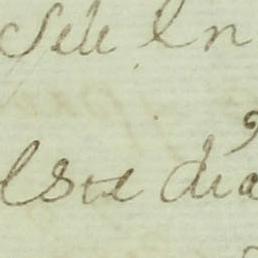 Sele en
este dia